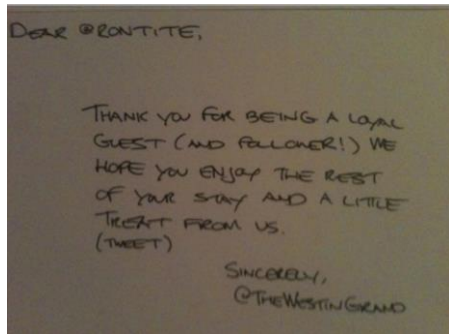 DEAR @RONTITE,
THANK YOU FOR BEING A LOYAL
GUEST (AND FOLLOWER!) WE
HOPE YOU ENJOY THE REST
OF YOUR STAY AND A LITTLE
TREAT FROM US.
(TWEET)
SINCERELY,
@THEWESTINGRAND